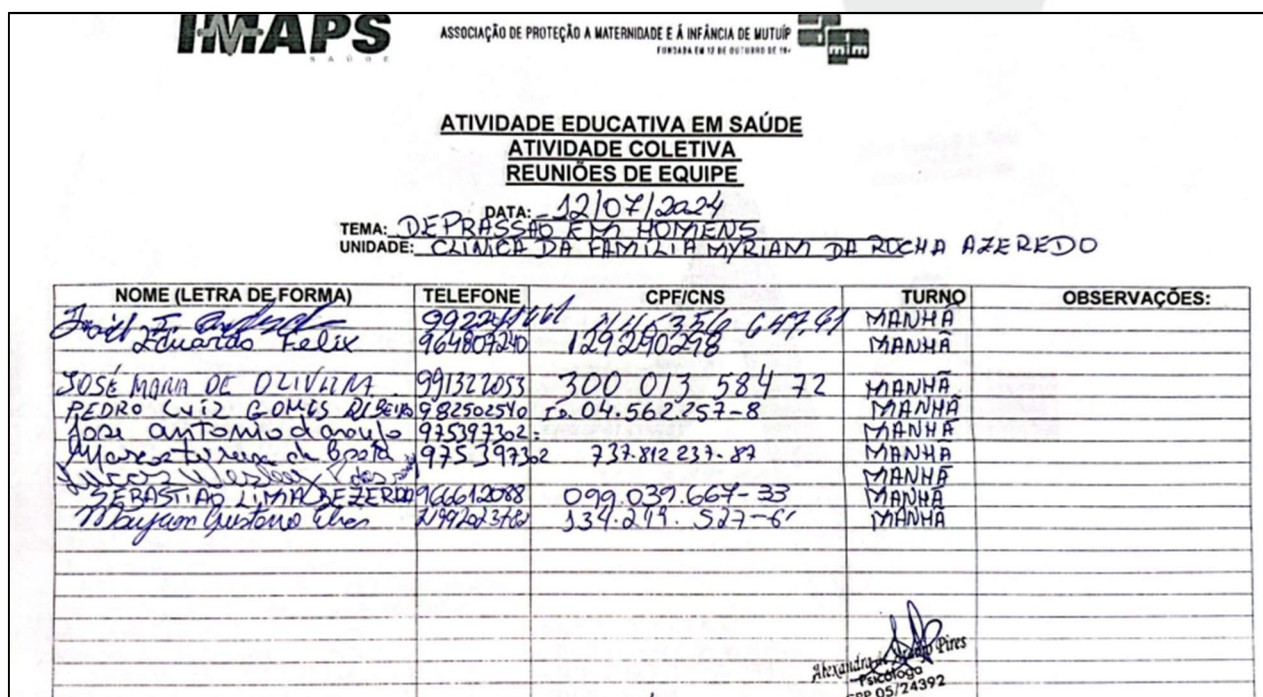 IMAPS
SAÚDE
ASSOCIAÇÃO DE PROTEÇÃO A MATERNIDADE E Á INFÂNCIA DE MUTUÍP
FUNDADA EM 12 DE OUTUBRO DE 19
mim
ATIVIDADE EDUCATIVA EM SAÚDE
ATIVIDADE COLETIVA
REUNIÕES DE EQUIPE
DATA: 12/07/2024
TEMA: DEPRASSÃO EM HOMENS
UNIDADE: CLINICA DA FAMÍLIA MYRIAM DA ROCHA AZEREDO
NOME (LETRA DE FORMA) TELEFONE CPF/CNS TURNO OBSERVAÇÕES:
MANHÃ
Eduardo Felix 964807240 129290298 MANHÃ
JOSÉ MARIA DE OLIVEIRA 991322053 300 013 584 72 MANHÃ
PEDRO LUIZ GOMES RIBEIRO 982502540 ID. 04.562.257-8 MANHÃ
Jose antonio daraujo 975397302 MANHÃ
975397302 737.812 237-87 MANHÃ
Lucas Wesley MANHÃ
SEBASTIÃO LIMA BEZERRA 966612088 099.039.667-33 MANHÃ
Gustavo MANHÃ
Pires
Psicólogo
CRP 05/24392